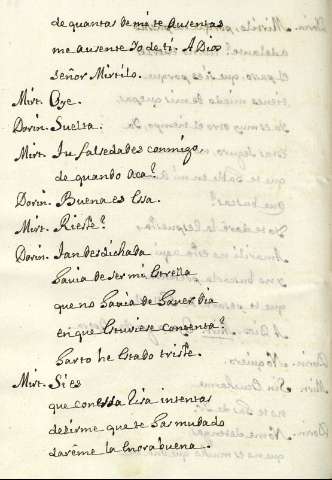 de quantas de mí te ausentas
me ausente Yo de ti. A Dios
señor Mirtilo.
Mirt. Oye.
Dorin. Suelta.
Mirt. Tu falsedades conmigo,
de quando acá?
Dorin. Buena es Essa.
Mirt. Rieste?
Dorin. Tan desdichada
havia de ser mi Estrella
que no havia de haver dia
en que Estuviese contenta?
harto he Estado triste.
Mirt. Si es
que con Essa risa intentas
dezirme que te has mudado
daréme la Enorabuena.